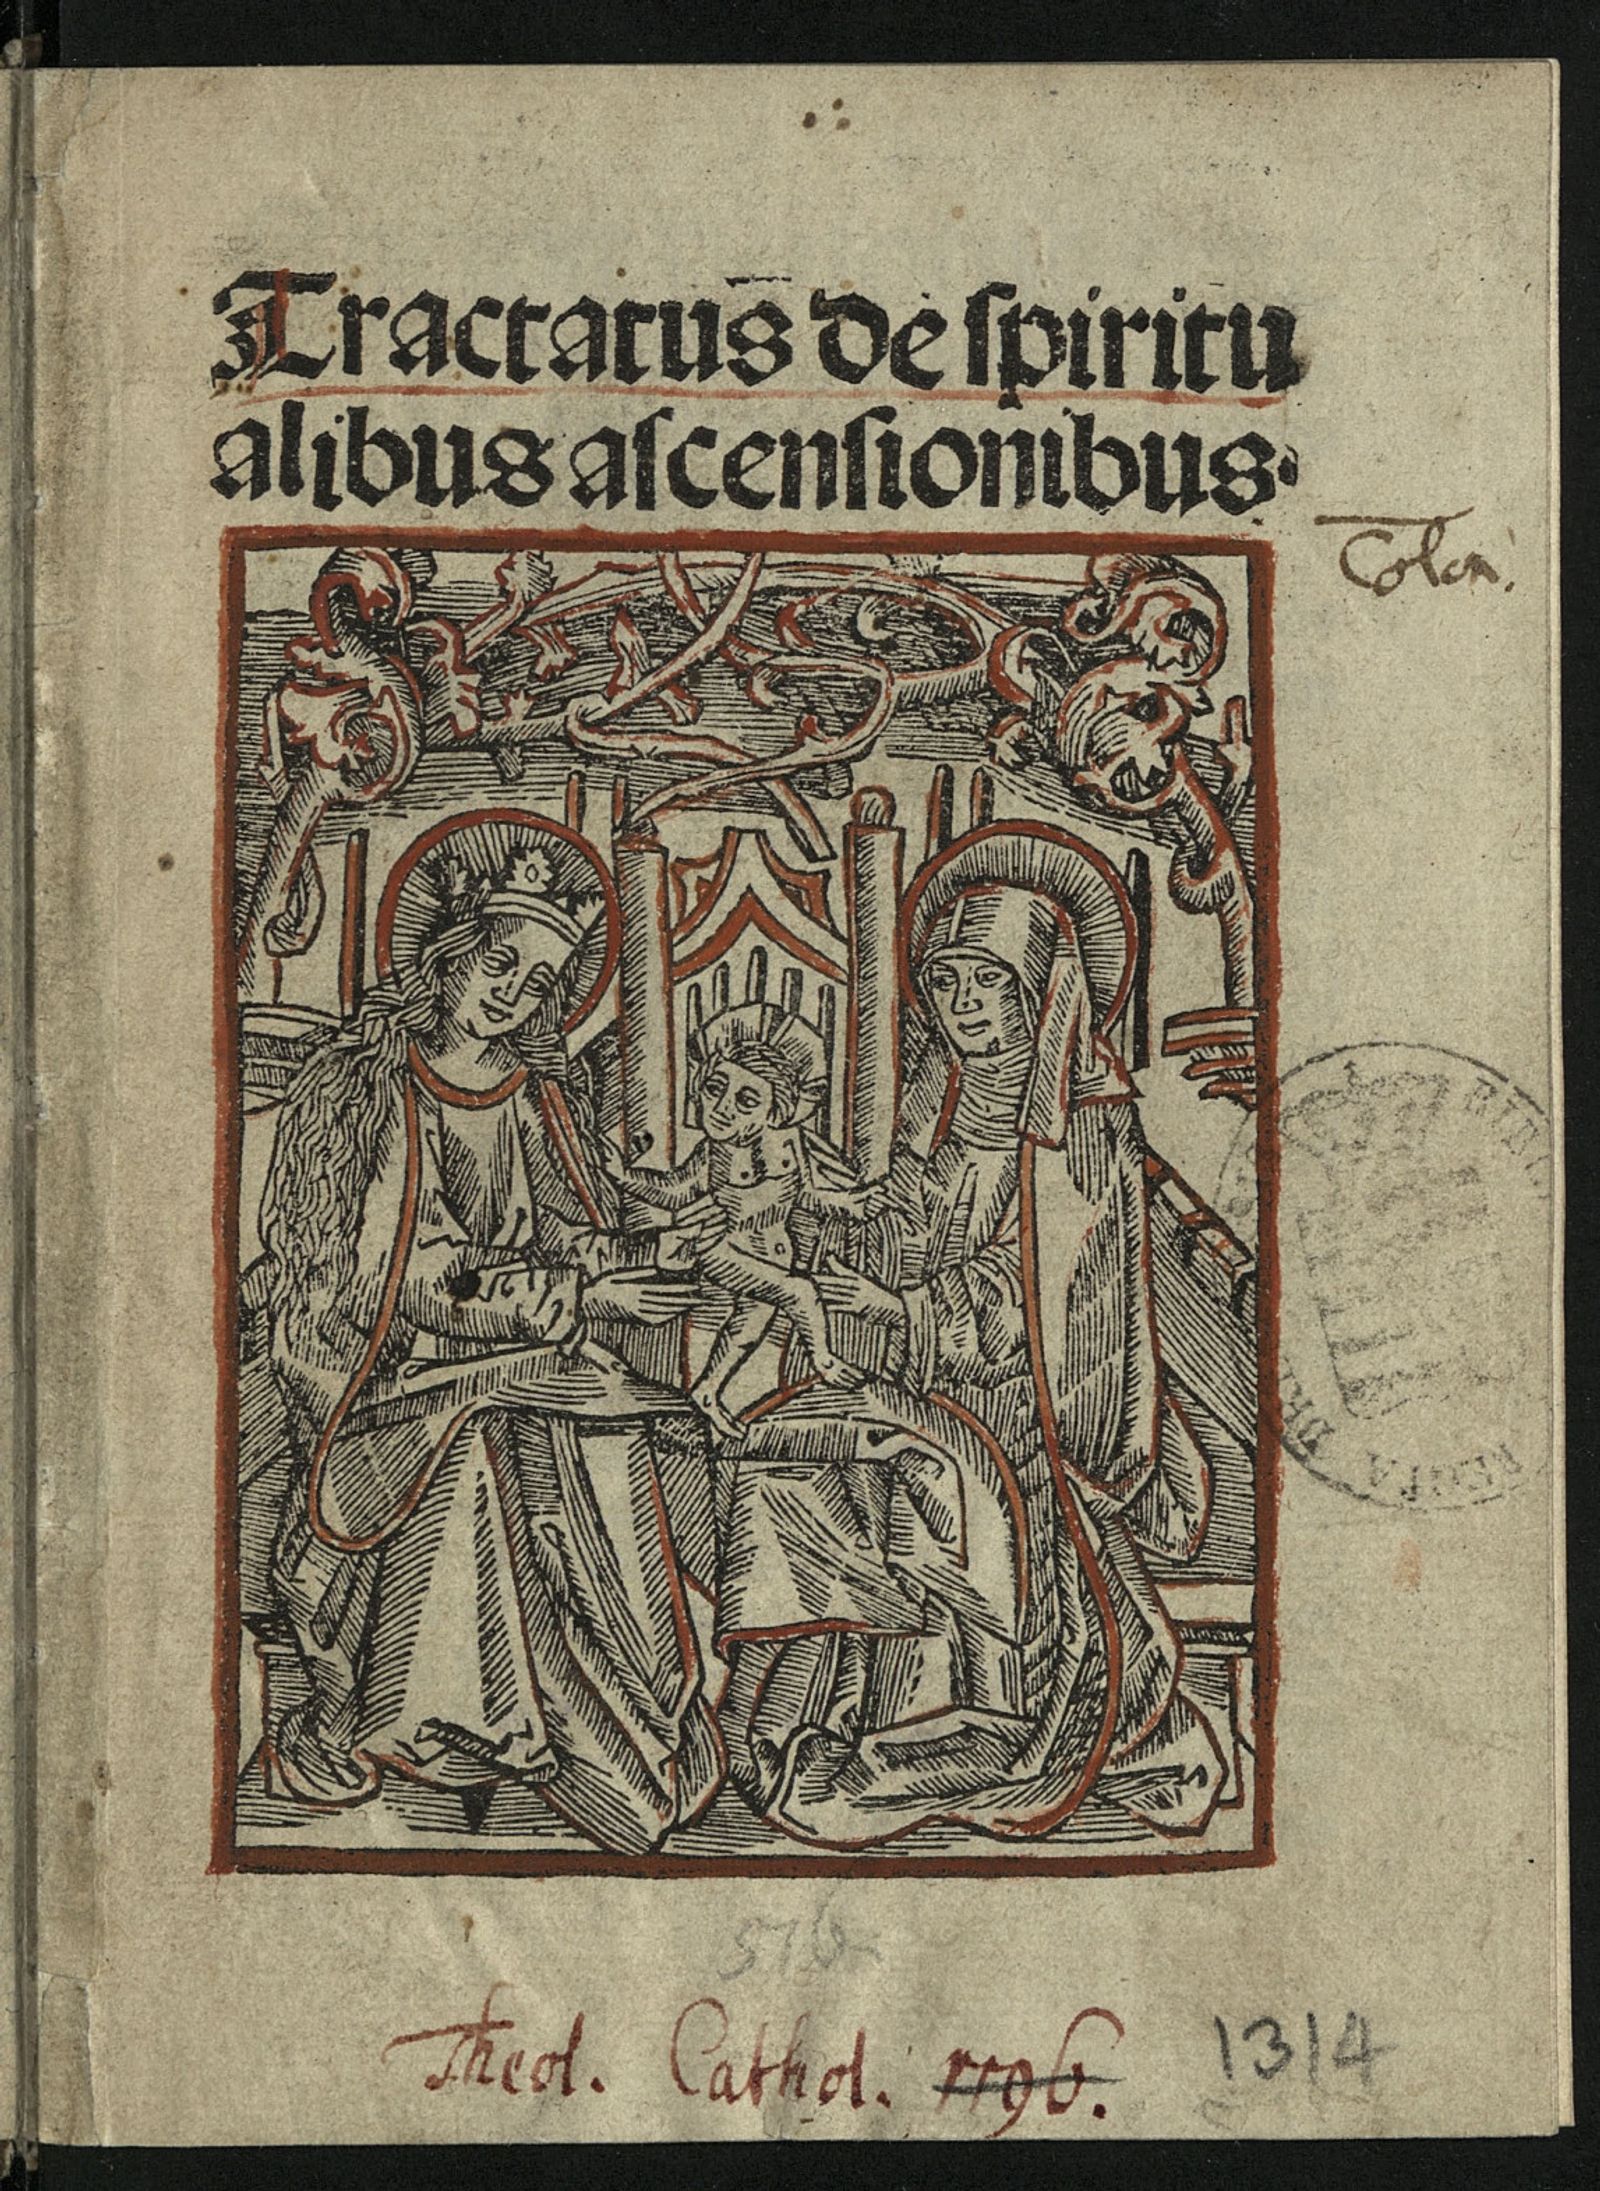 Tractatus de spiritu
alibus ascensionibus.
Colon.
Theol. Cathol. 1196.
1314